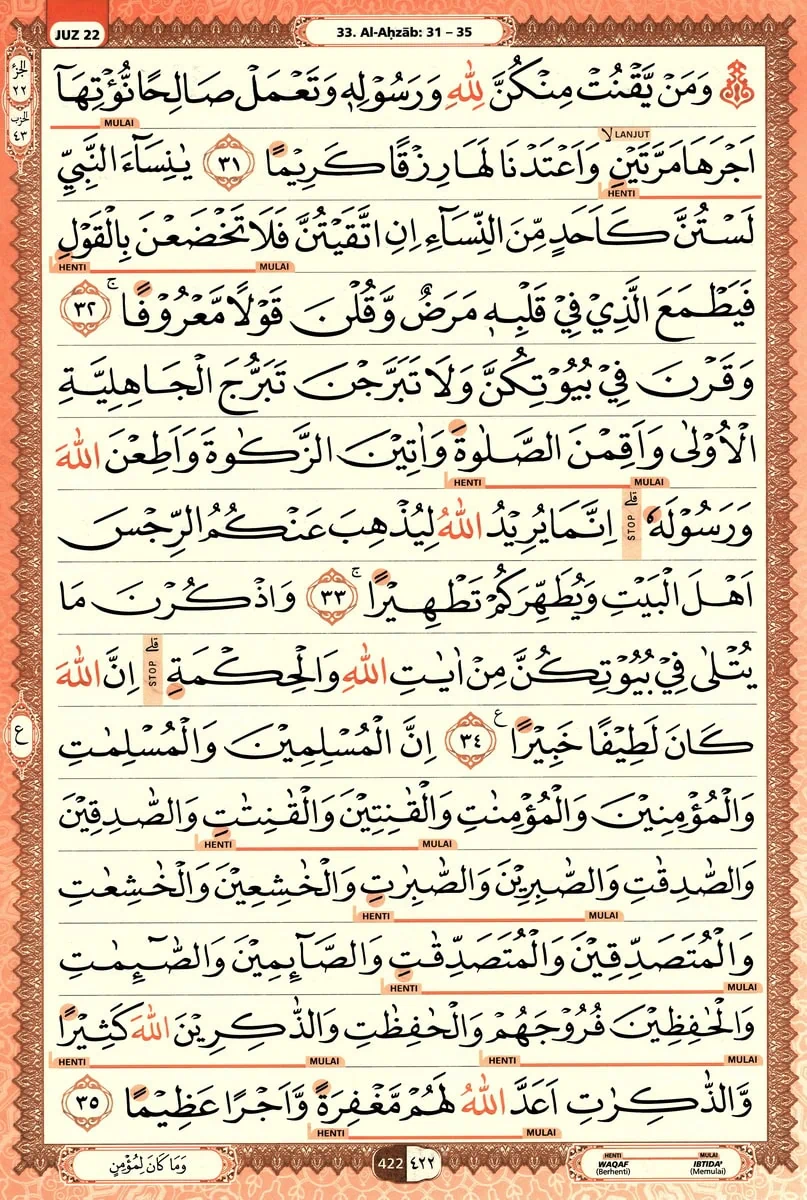 JUZ 22
33. Al-Aḥzāb: 31 – 35
الجزء
٢٢
الحزب
٤٣
وَمَنْ يَّقْنُتْ مِنْكُنَّ لِلّٰهِ وَرَسُوْلِهٖ وَتَعْمَلْ صَالِحًا نُّؤْتِهَآ
MULAI
LANJUT
اَجْرَهَا مَرَّتَيْنِۙ وَاَعْتَدْنَا لَهَا رِزْقًا كَرِيْمًا ٣١ يٰنِسَاۤءَ النَّبِيِّ
HENTI
لَسْتُنَّ كَاَحَدٍ مِّنَ النِّسَاۤءِ اِنِ اتَّقَيْتُنَّ فَلَا تَخْضَعْنَ بِالْقَوْلِ
HENTI MULAI
فَيَطْمَعَ الَّذِيْ فِيْ قَلْبِهٖ مَرَضٌ وَّقُلْنَ قَوْلًا مَّعْرُوْفًاۚ ٣٢
وَقَرْنَ فِيْ بُيُوْتِكُنَّ وَلَا تَبَرَّجْنَ تَبَرُّجَ الْجَاهِلِيَّةِ
الْاُوْلٰى وَاَقِمْنَ الصَّلٰوةَ وَاٰتِيْنَ الزَّكٰوةَ وَاَطِعْنَ اللّٰهَ
HENTI MULAI
وَرَسُوْلَهٗ ۗ STOP اِنَّمَا يُرِيْدُ اللّٰهُ لِيُذْهِبَ عَنْكُمُ الرِّجْسَ
اَهْلَ الْبَيْتِ وَيُطَهِّرَكُمْ تَطْهِيْرًاۚ ٣٣ وَاذْكُرْنَ مَا
يُتْلٰى فِيْ بُيُوْتِكُنَّ مِنْ اٰيٰتِ اللّٰهِ وَالْحِكْمَةِۗ STOP اِنَّ اللّٰهَ
كَانَ لَطِيْفًا خَبِيْرًا ࣖ ٣٤ اِنَّ الْمُسْلِمِيْنَ وَالْمُسْلِمٰتِ
ع
وَالْمُؤْمِنِيْنَ وَالْمُؤْمِنٰتِ وَالْقٰنِتِيْنَ وَالْقٰنِتٰتِ وَالصّٰدِقِيْنَ
HENTI MULAI
وَالصّٰدِقٰتِ وَالصّٰبِرِيْنَ وَالصّٰبِرٰتِ وَالْخٰشِعِيْنَ وَالْخٰشِعٰتِ
HENTI MULAI
وَالْمُتَصَدِّقِيْنَ وَالْمُتَصَدِّقٰتِ وَالصَّاۤىِٕمِيْنَ وَالصّٰۤىِٕمٰتِ
HENTI MULAI
وَالْحٰفِظِيْنَ فُرُوْجَهُمْ وَالْحٰفِظٰتِ وَالذّٰكِرِيْنَ اللّٰهَ كَثِيْرًا
HENTI MULAI HENTI MULAI
وَّالذّٰكِرٰتِ اَعَدَّ اللّٰهُ لَهُمْ مَّغْفِرَةً وَّاَجْرًا عَظِيْمًا ٣٥
HENTI MULAI
وَمَا كَانَ لِمُؤْمِنٍ
422 ٤٢٢
HENTI MULAI
WAQAF IBTIDA'
(Berhenti) (Memulai)